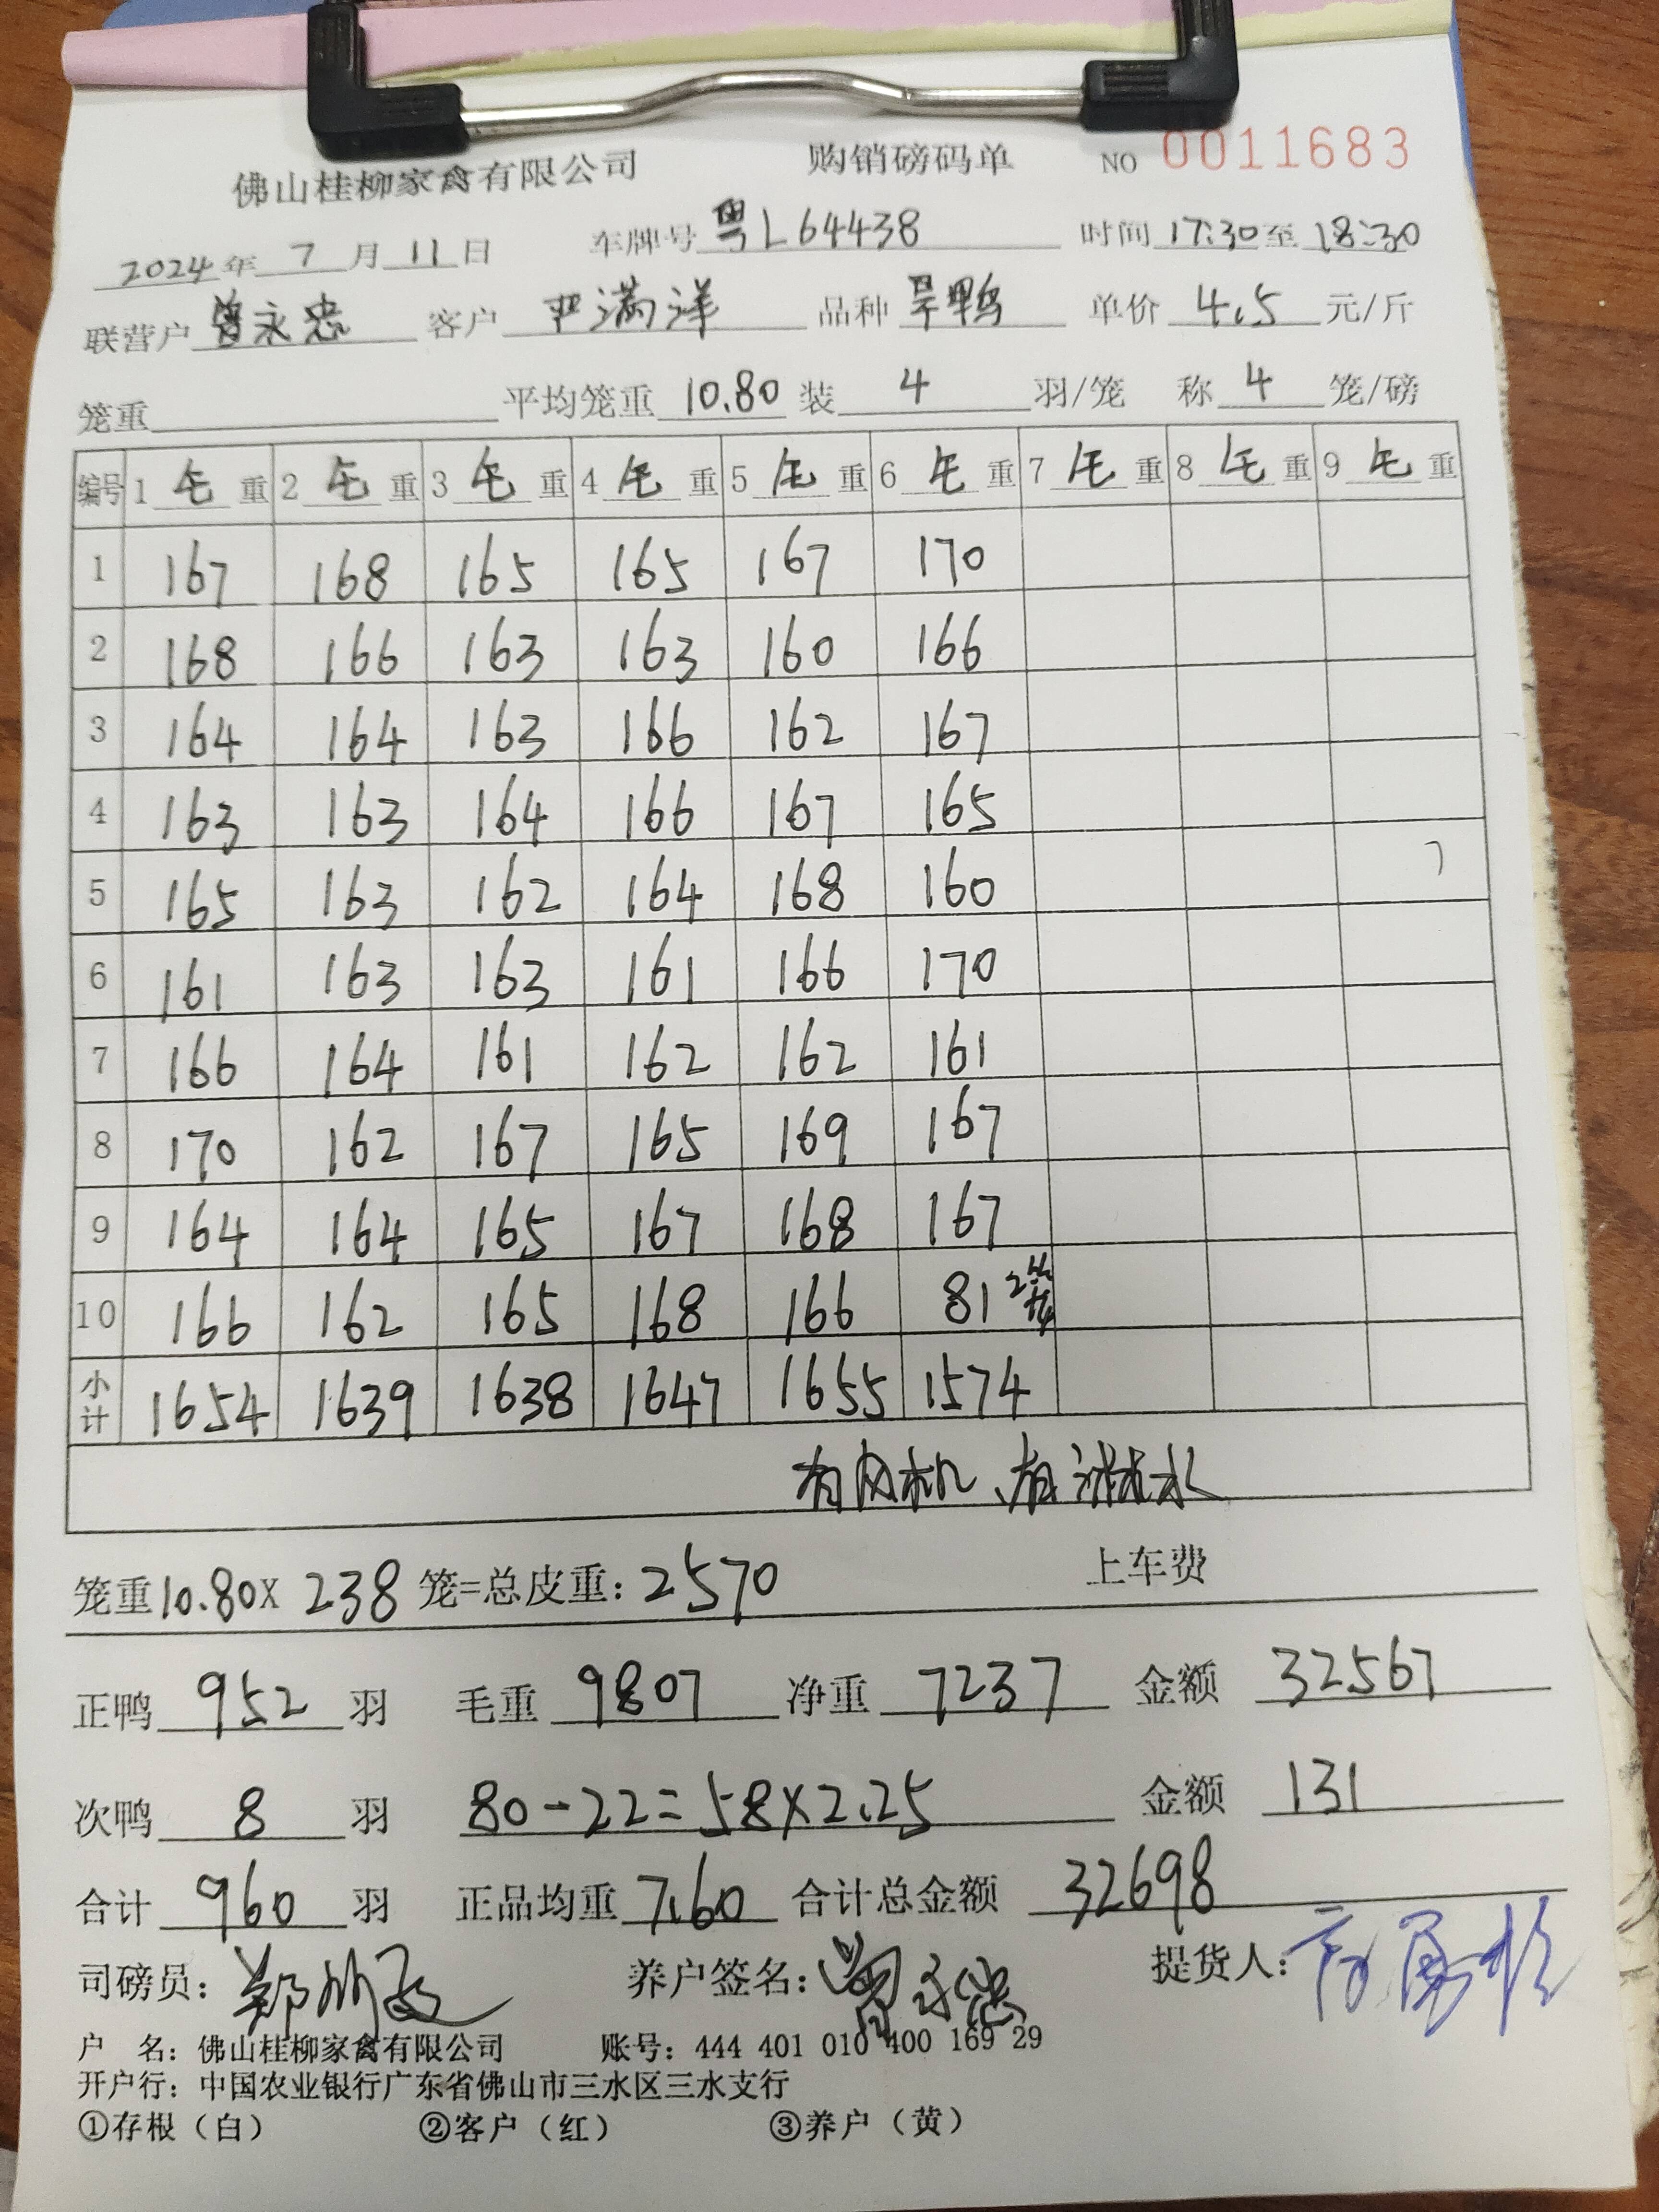 佛山桂柳家禽有限公司 购销磅码单 NO 0011683
2024年7月11日 车牌号粤L64438 时间17:30至18:30
联营户曾永忠 客户严满洋 品种旱鸭 单价4.5元/斤
笼重 平均笼重10.80装4羽/笼 称4笼/磅
编号 1毛重 2毛重 3毛重 4毛重 5毛重 6毛重 7毛重 8毛重 9毛重
1 167 168 165 165 167 170
2 168 166 163 163 160 166
3 164 164 163 166 162 167
4 163 163 164 166 167 165
5 165 163 162 164 168 160
6 161 163 163 161 166 170
7 166 164 161 162 162 161
8 170 162 167 165 169 167
9 164 164 165 167 168 167
10 166 162 165 168 166 81 2笼
小计 1654 1639 1638 1647 1655 1574
有风机、有淋水
笼重10.80X 238笼=总皮重:2570 上车费
正鸭952羽 毛重9807净重7237金额32567
次鸭8羽 80-22=58×2.25 金额131
合计960羽 正品均重7.60合计总金额32698
司磅员: 养户签名:曾永忠 提货人:
户 名:佛山桂柳家禽有限公司 账号:444 401 010 400 169 29
开户行:中国农业银行广东省佛山市三水区三水支行
①存根(白) ②客户(红) ③养户(黄)